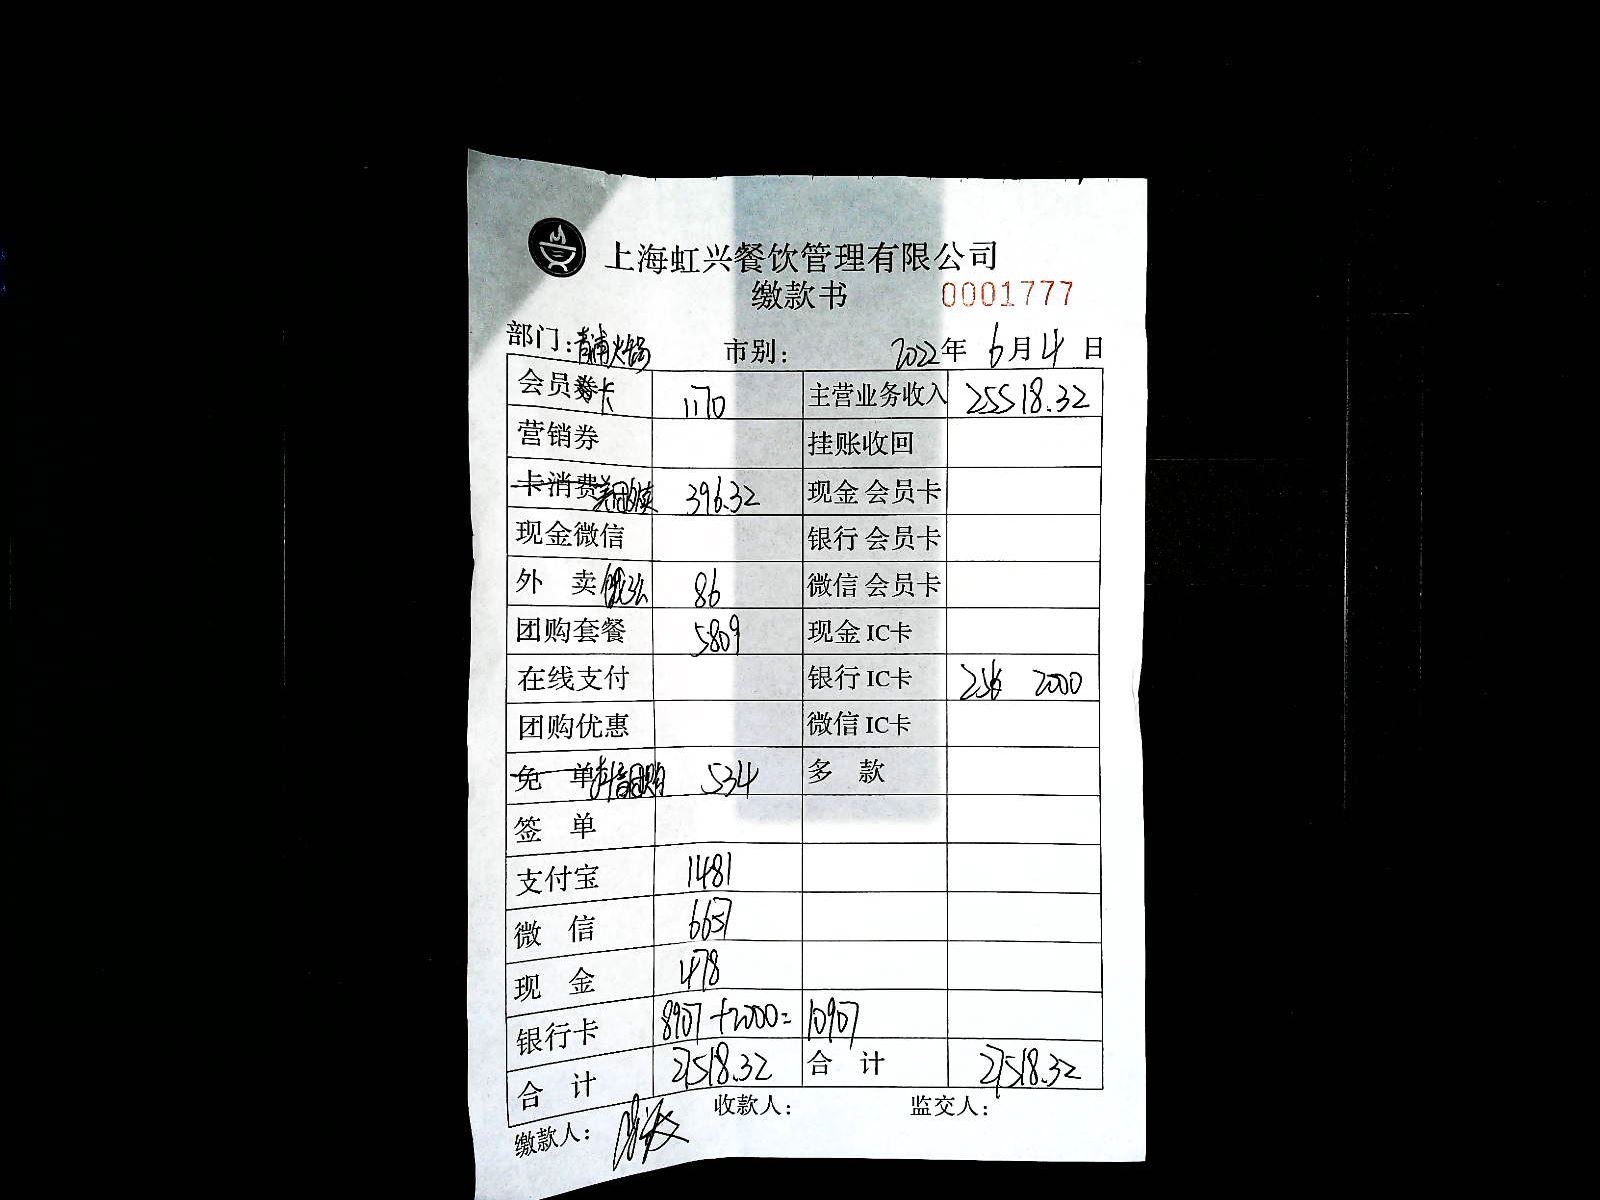 上海虹兴餐饮管理有限公司
缴款书 0001777
部门:青浦火锅 市别: 2022年6月4日
会员卡 1170 主营业务收入 25518.32
营销券 挂账收回
卡消费 396.32 现金会员卡
现金微信 银行会员卡
外卖 86 微信会员卡
团购套餐 5809 现金IC卡
在线支付 银行IC卡 2000
团购优惠 微信IC卡
免单抖音团购 534 多款
签单
支付宝 1481
微信 6657
现金 478
银行卡 8907+2000=10907
合计 27518.32 合计 27518.32
缴款人: 收款人: 监交人: